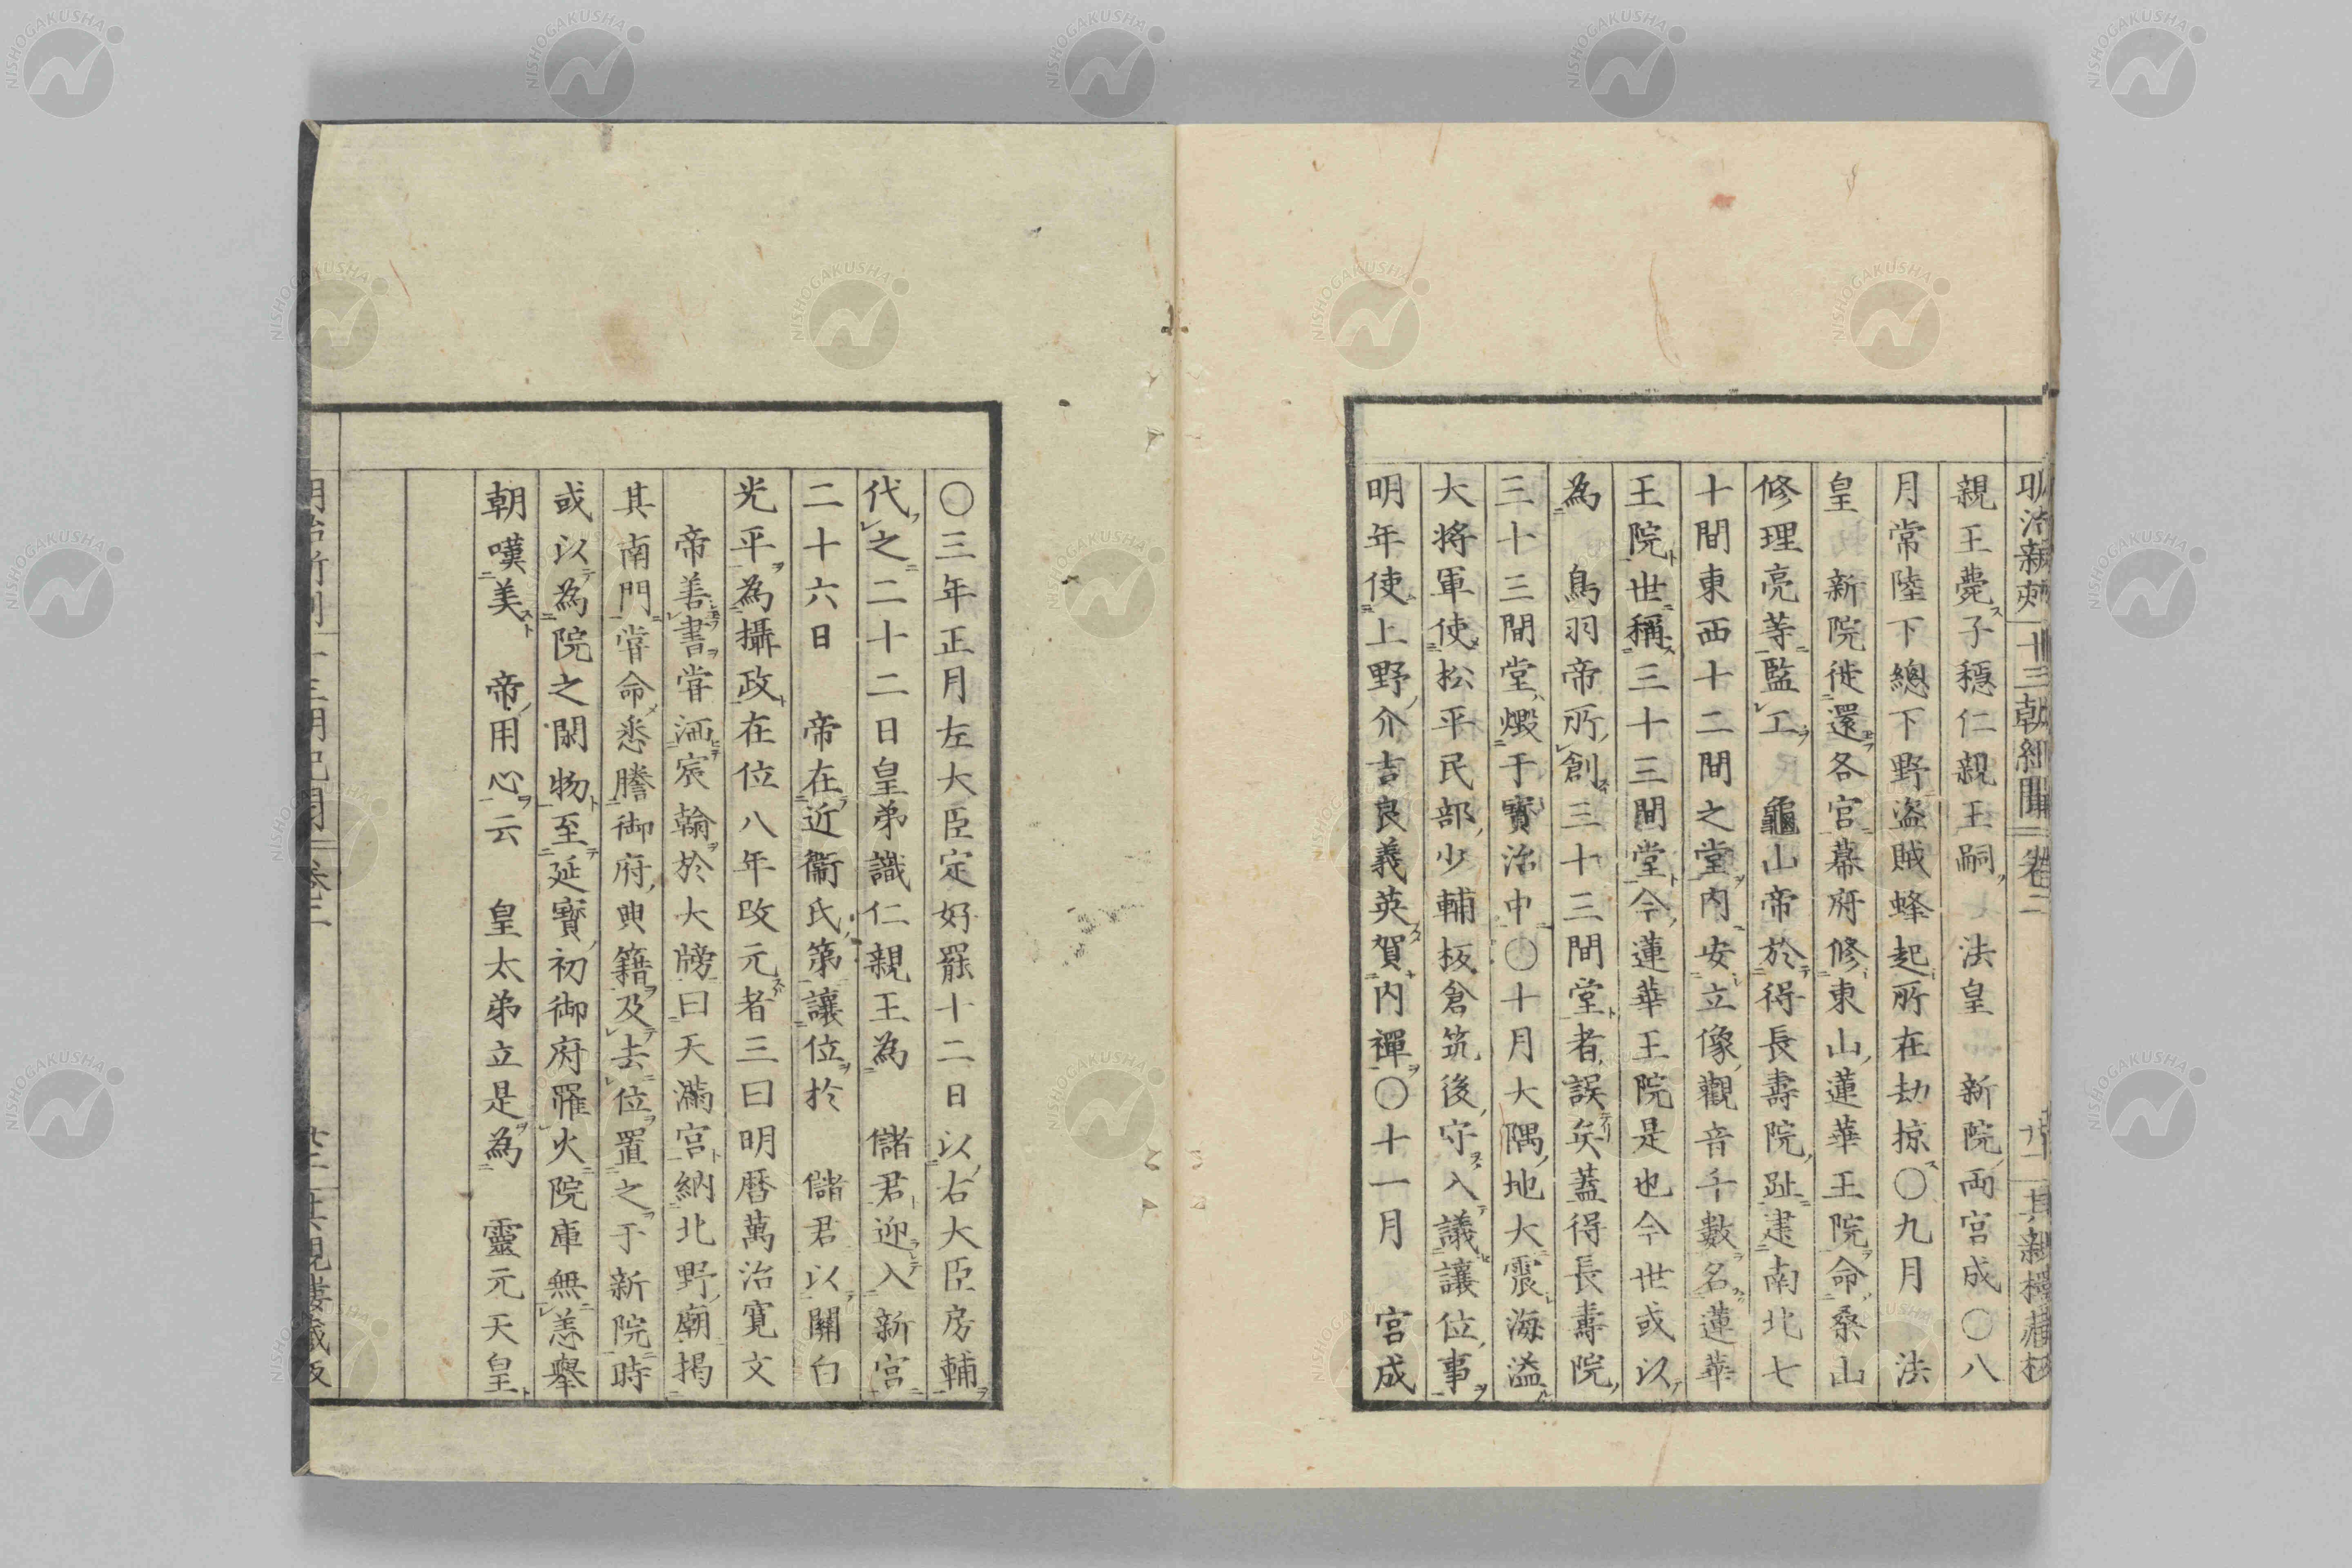 明治新刻十三朝紀聞 卷二
親王薨子穩仁親王嗣 法皇 新院兩宮成○八
月常陸下總下野盗賊蜂起所在劫掠○九月 法
皇 新院徙還各宮幕府修東山蓮華王院命桑山
修理亮等監工 龜山帝於得長壽院趾建南北七
十間東西十二間之堂内安立像觀音千數名蓮華
王院世稱三十三間堂今蓮華王院是也今世或以
為 鳥羽帝所創三十三間堂者誤矣蓋得長壽院
三十三間堂燬于寶治中○十月大隅地大震海溢
大將軍使松平民部少輔板倉筑後守入議讓位事
明年使上野介吉良義英賀内禪○十一月 宮成
○三年正月左大臣定好罷十二日以右大臣房輔
代之二十二日皇弟識仁親王為 儲君迎入新宮
二十六日 帝在近衞氏第讓位於 儲君以關白
光平為攝政在位八年改元者三曰明曆萬治寬文
帝善書甞洒宸翰於大牓曰天滿宮納北野廟揭
其南門甞命悉謄御府典籍及去位置之于新院時
或以為院之閑物至延寶初御府罹火院庫無恙擧
朝嘆美 帝用心云 皇太弟立是為 靈元天皇